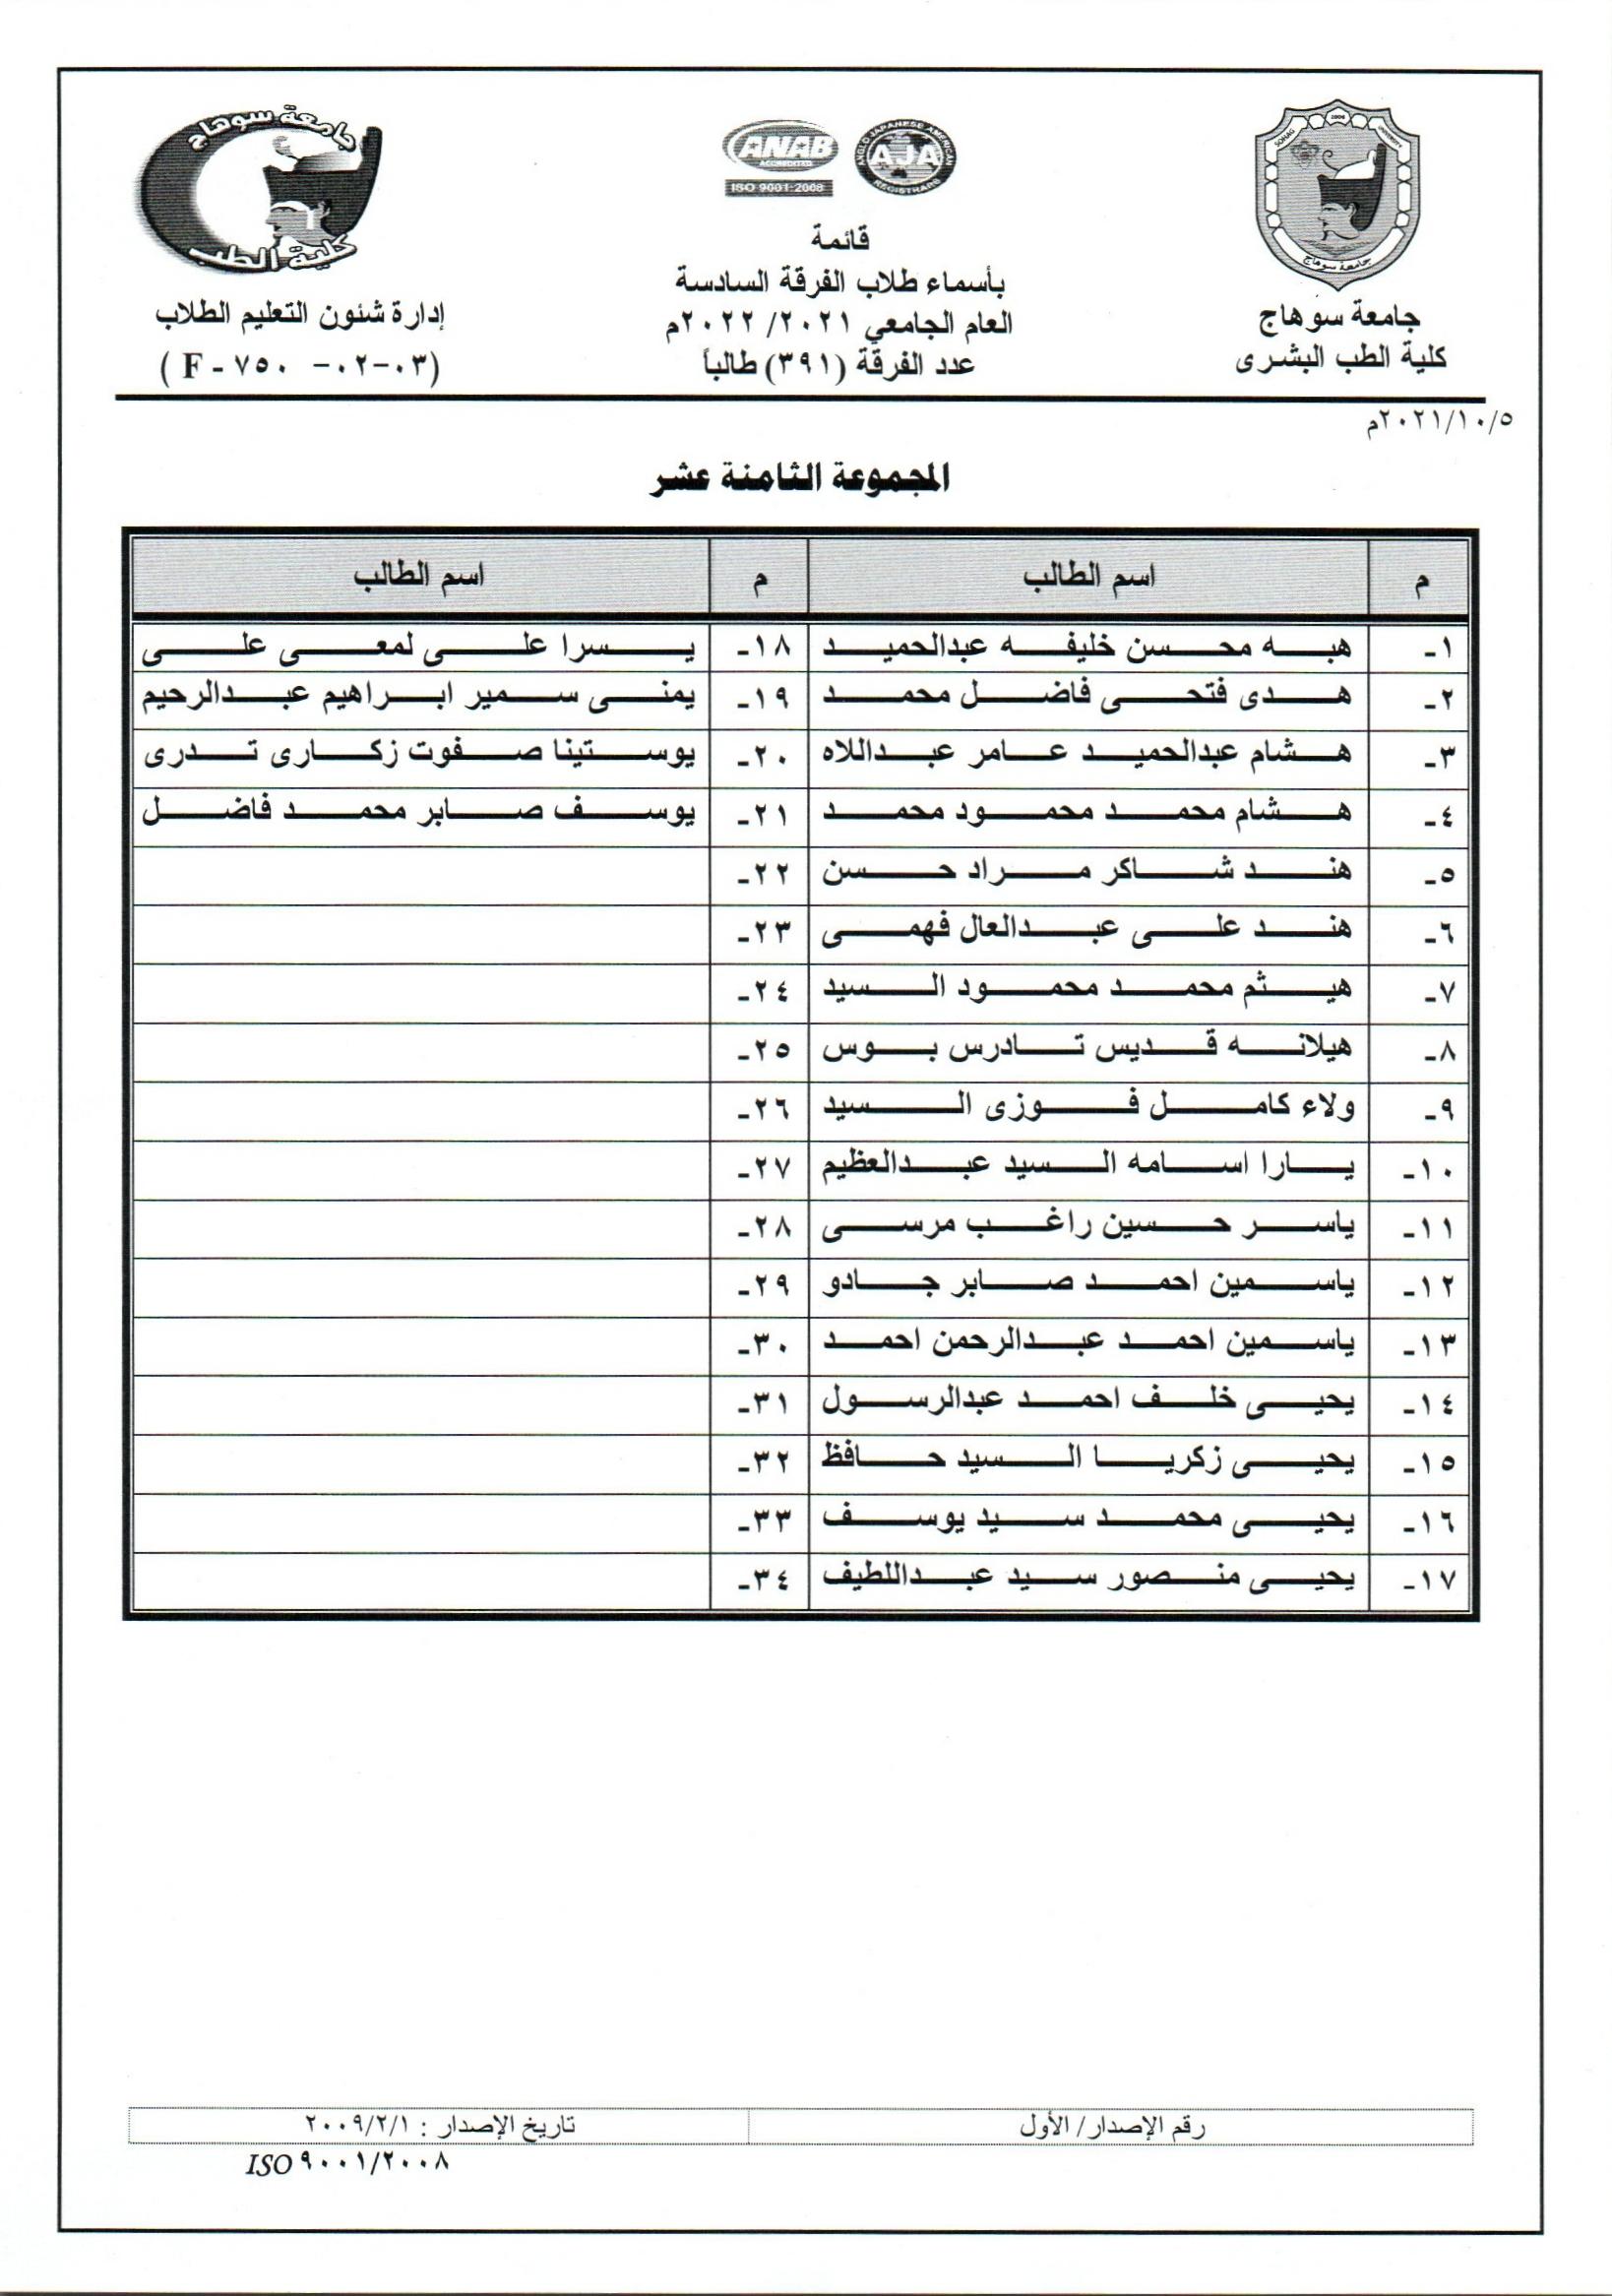 جامعة سوهاج
كلية الطب البشرى
SOHAG
2006
UNIVERSITY
جامعة سوهاج
ANAB
ACCREDITED
ISO 9001:2008
ANGLO JAPANESE AMERICAN
AJA
REGISTRARS
قائمة
بأسماء طلاب الفرقة السادسة
العام الجامعي ٢٠٢١/ ٢٠٢٢م
عدد الفرقة (٣٩١) طالباً
جامعة سوهاج
كلية الطب
إدارة شئون التعليم الطلاب
(F - ٧٥٠ -٠٢-٠٣)
٢٠٢١/١٠/٥م
المجموعة الثامنة عشر
م اسم الطالب م اسم الطالب
١- هبه محسن خليفه عبدالحميد ١٨- يسرا على لمعى على
٢- هدى فتحى فاضل محمد ١٩- يمنى سمير ابراهيم عبدالرحيم
٣- هشام عبدالحميد عامر عبداللاه ٢٠- يوستينا صفوت زكارى تدرى
٤- هشام محمد محمود محمد ٢١- يوسف صابر محمد فاضل
٥- هند شاكر مراد حسن ٢٢-
٦- هند على عبدالعال فهمى ٢٣-
٧- هيثم محمد محمود السيد ٢٤-
٨- هيلانه قديس تادرس بوس ٢٥-
٩- ولاء كامل فوزى السيد ٢٦-
١٠- يارا اسامه السيد عبدالعظيم ٢٧-
١١- ياسر حسين راغب مرسى ٢٨-
١٢- ياسمين احمد صابر جادو ٢٩-
١٣- ياسمين احمد عبدالرحمن احمد ٣٠-
١٤- يحيى خلف احمد عبدالرسول ٣١-
١٥- يحيى زكريا السيد حافظ ٣٢-
١٦- يحيى محمد سيد يوسف ٣٣-
١٧- يحيى منصور سيد عبداللطيف ٣٤-
رقم الإصدار/ الأول تاريخ الإصدار : ٢٠٠٩/٢/١
ISO ٩٠٠١/٢٠٠٨